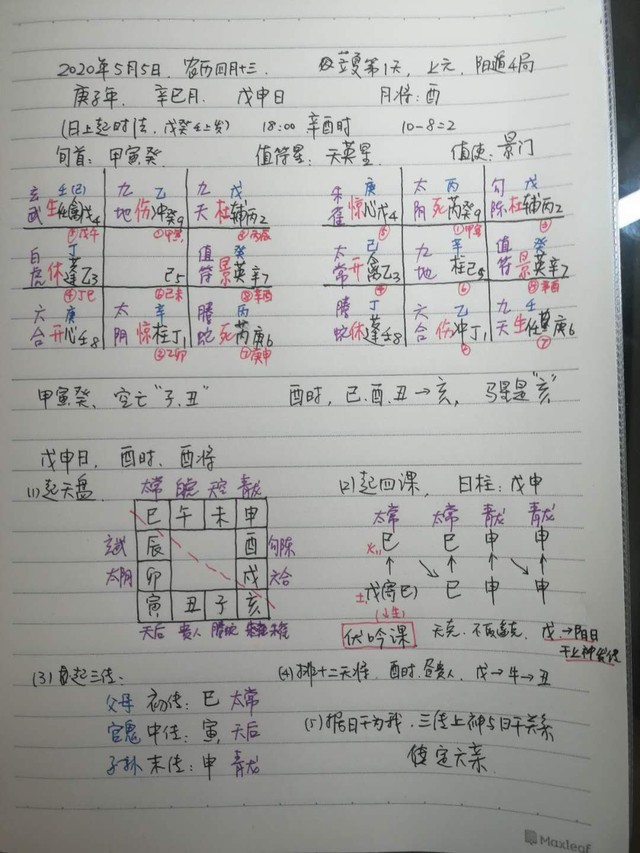 2020年5月5日，农历四月十三．立夏第1天，上元，阳遁4局
庚子年．辛巳月．戊申日 月将：酉
(日上起时法，戊癸壬上发) 18:00 辛酉时 10-8=2
旬首：甲寅癸． 值符星：天英星． 值使：景门
玄武 壬(己) 生 任禽戊4 ③戊午
九地 乙 伤 冲癸9 ①甲寅
九天 戊 杜 辅丙2 ③丙辰
白虎 丁 休 蓬乙3 ④丁巳
己5 ⑥己未
值符 癸 景 英辛7 ⑧辛酉
六合 庚 开 心壬8
太阴 辛 惊 柱丁1 ②乙卯
螣蛇 丙 死 芮庚6 ⑦庚申
朱雀 庚 惊 心戊4
太阴 丙 死 芮癸9 ①甲寅
勾陈 戊 杜 辅丙2 ③
太常 己 开 禽乙3
九地 辛 柱己5 ⑥
值符 癸 景 英辛7 辛酉
螣蛇 丁 休 蓬壬8
六合 乙 伤 冲丁1
九天 壬 生 任庚6 ⑦
甲寅癸．空亡"子.丑" 酉时，巳.酉.丑→亥， 马星是"亥"
戊申日．酉时．酉将
(1)起天盘 太常 白虎 天空 青龙
巳 午 未 申
玄武 辰 酉 勾陈
太阴 卯 戌 六合
寅 丑 子 亥
天后 贵人 螣蛇 朱雀
(2)起四课， 日柱：戊申
太常 太常 青龙 青龙
火 巳 巳 申 申
土 戊(寄巳) 巳 申 申
伏吟课 无克．不取遥克，戊→阳日
干上神发传
(3)起三传：
父母 初传：巳 太常
官鬼 中传：寅，天后
子孙 末传：申 青龙
(4)排十二天将．酉时.昼贵人，戊→牛→丑
(5)据日干为我．三传上神与日干关系
值定六亲．
Maxleaf